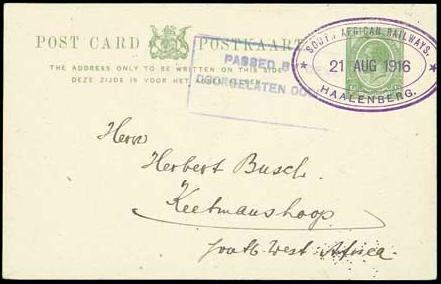 POST CARD POSTKAART
THE ADDRESS ONLY TO BE WRITTEN ON THIS SIDE
DEZE ZIJDE IS VOOR HET ADRES
PASSED B
DOORGELATEN DOOR
SOUTH AFRICAN RAILWAYS.
21 AUG 1916
HAALENBERG.
Herrn
Herbert Busch.
Keetmanshoop
South-West Africa.